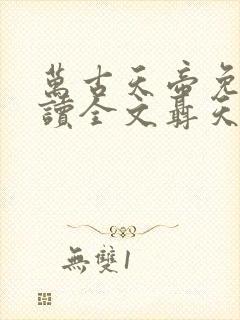 萬古天帝免
讀全文聶天
無雙1